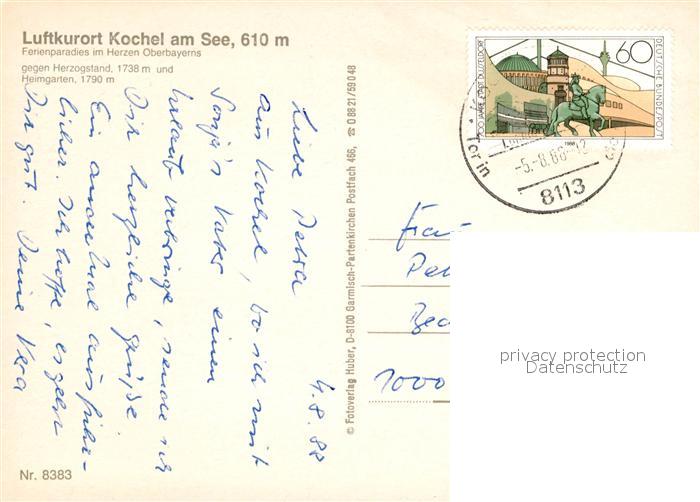 Luftkurort Kochel am See, 610 m
Ferienparadies im Herzen Oberbayerns
gegen Herzogstand, 1738 m und
Heimgarten, 1790 m
4.8.88
Liebe Petra
aus Kochel, wo ich mit
Sonja's Vater einen
Urlaub verbringe, sende ich
Dir herzliche Grüße.
Ein andermal ausführ-
licher. Ich hoffe, es geht
Dir gut. Deine Vera
Nr. 8383
© Fotoverlag Huber, D-8100 Garmisch-Partenkirchen Postfach 466, ☎ 0 88 21/5 90 48
60
DEUTSCHE BUNDESPOST
700 JAHRE STADT DÜSSELDORF
1988
Tor in
-5.-8.88-12
8113
Frau
Pet
1000
privacy protection
Datenschutz